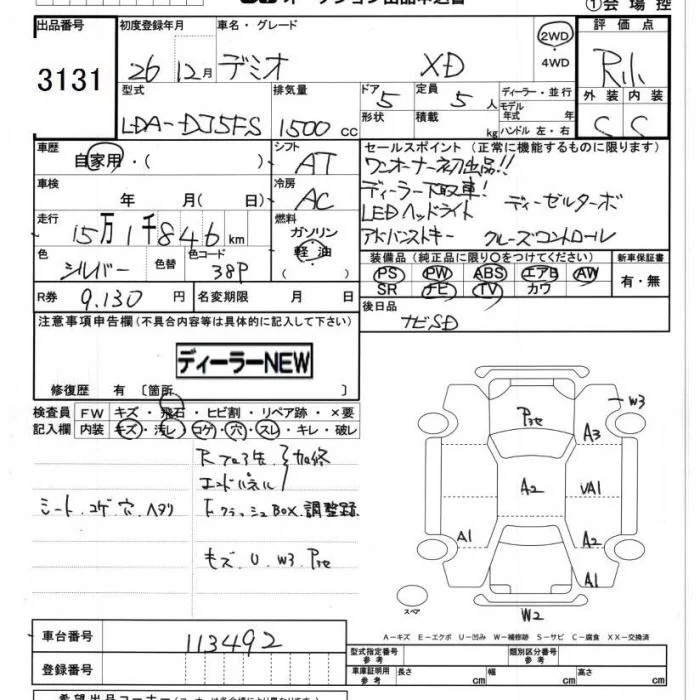 オークション出品申込書
①会場控
出品番号 初度登録年月 車名・グレード 2WD・4WD 評価点
3131 26 12月 デミオ XD
外装 内装
C C
型式 排気量 ドア 定員 ディーラー・並行
LDA-DJ5FS 1500 cc 5 5人 モデル年式 年
形状 積載 kg ハンドル 左・右
車歴 シフト セールスポイント (正常に機能するものに限ります)
自家用・( ) AT ワンオーナー初出品!!
車検 冷房 ディーラー下取車! ディーゼルターボ
年 月( 日) AC LEDヘッドライト
走行 燃料 アドバンストキー クルーズコントロール
15万1千846km ガソリン
軽・油
色 色替 色コード 装備品 (純正品に限り○をつけてください) 新車保証書
シルバー 38P PS PW ABS エアB AW 有・無
SR ナビ TV カワ
R券 9.130円 名変期限 月 日 後日品
ナビSD
注意事項申告欄 (不具合内容等は具体的に記入して下さい)
ディーラーNEW
修復歴 有 〔箇所 〕
検査員 FW キズ・飛石・ヒビ割・リペア跡・×要
記入欄 内装 キズ・汚レ・コゲ・穴・スレ・キレ・破レ
シート.コゲ.穴.ヘタリ
エンドパネル
FクラッシュBOX.調整跡
キズ U W3
W3
A3
A2
A1
A1
A2
A1
スペア
W2
A-キズ E-エクボ U-凹み W-補修跡 S-サビ C-腐食 XX-交換済
車台番号 113492
型式指定番号 参考 類別区分番号 参考
登録番号 車庫証明用 参考 長さ cm 幅 cm 高さ cm
希望出品コーナー